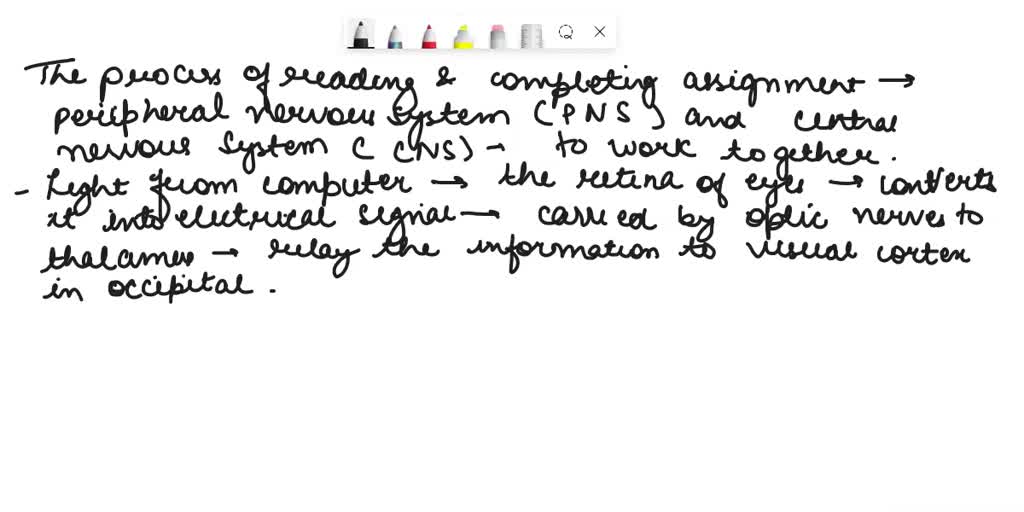 The process of reading & completing assignment →
peripheral nervous system (PNS) and central
nervous system (CNS) → to work together.
- Light from computer → the retina of eyes → converts
it into electrical signal → carried by optic nerves to
thalamus → relay the information to visual cortex
in occipital.